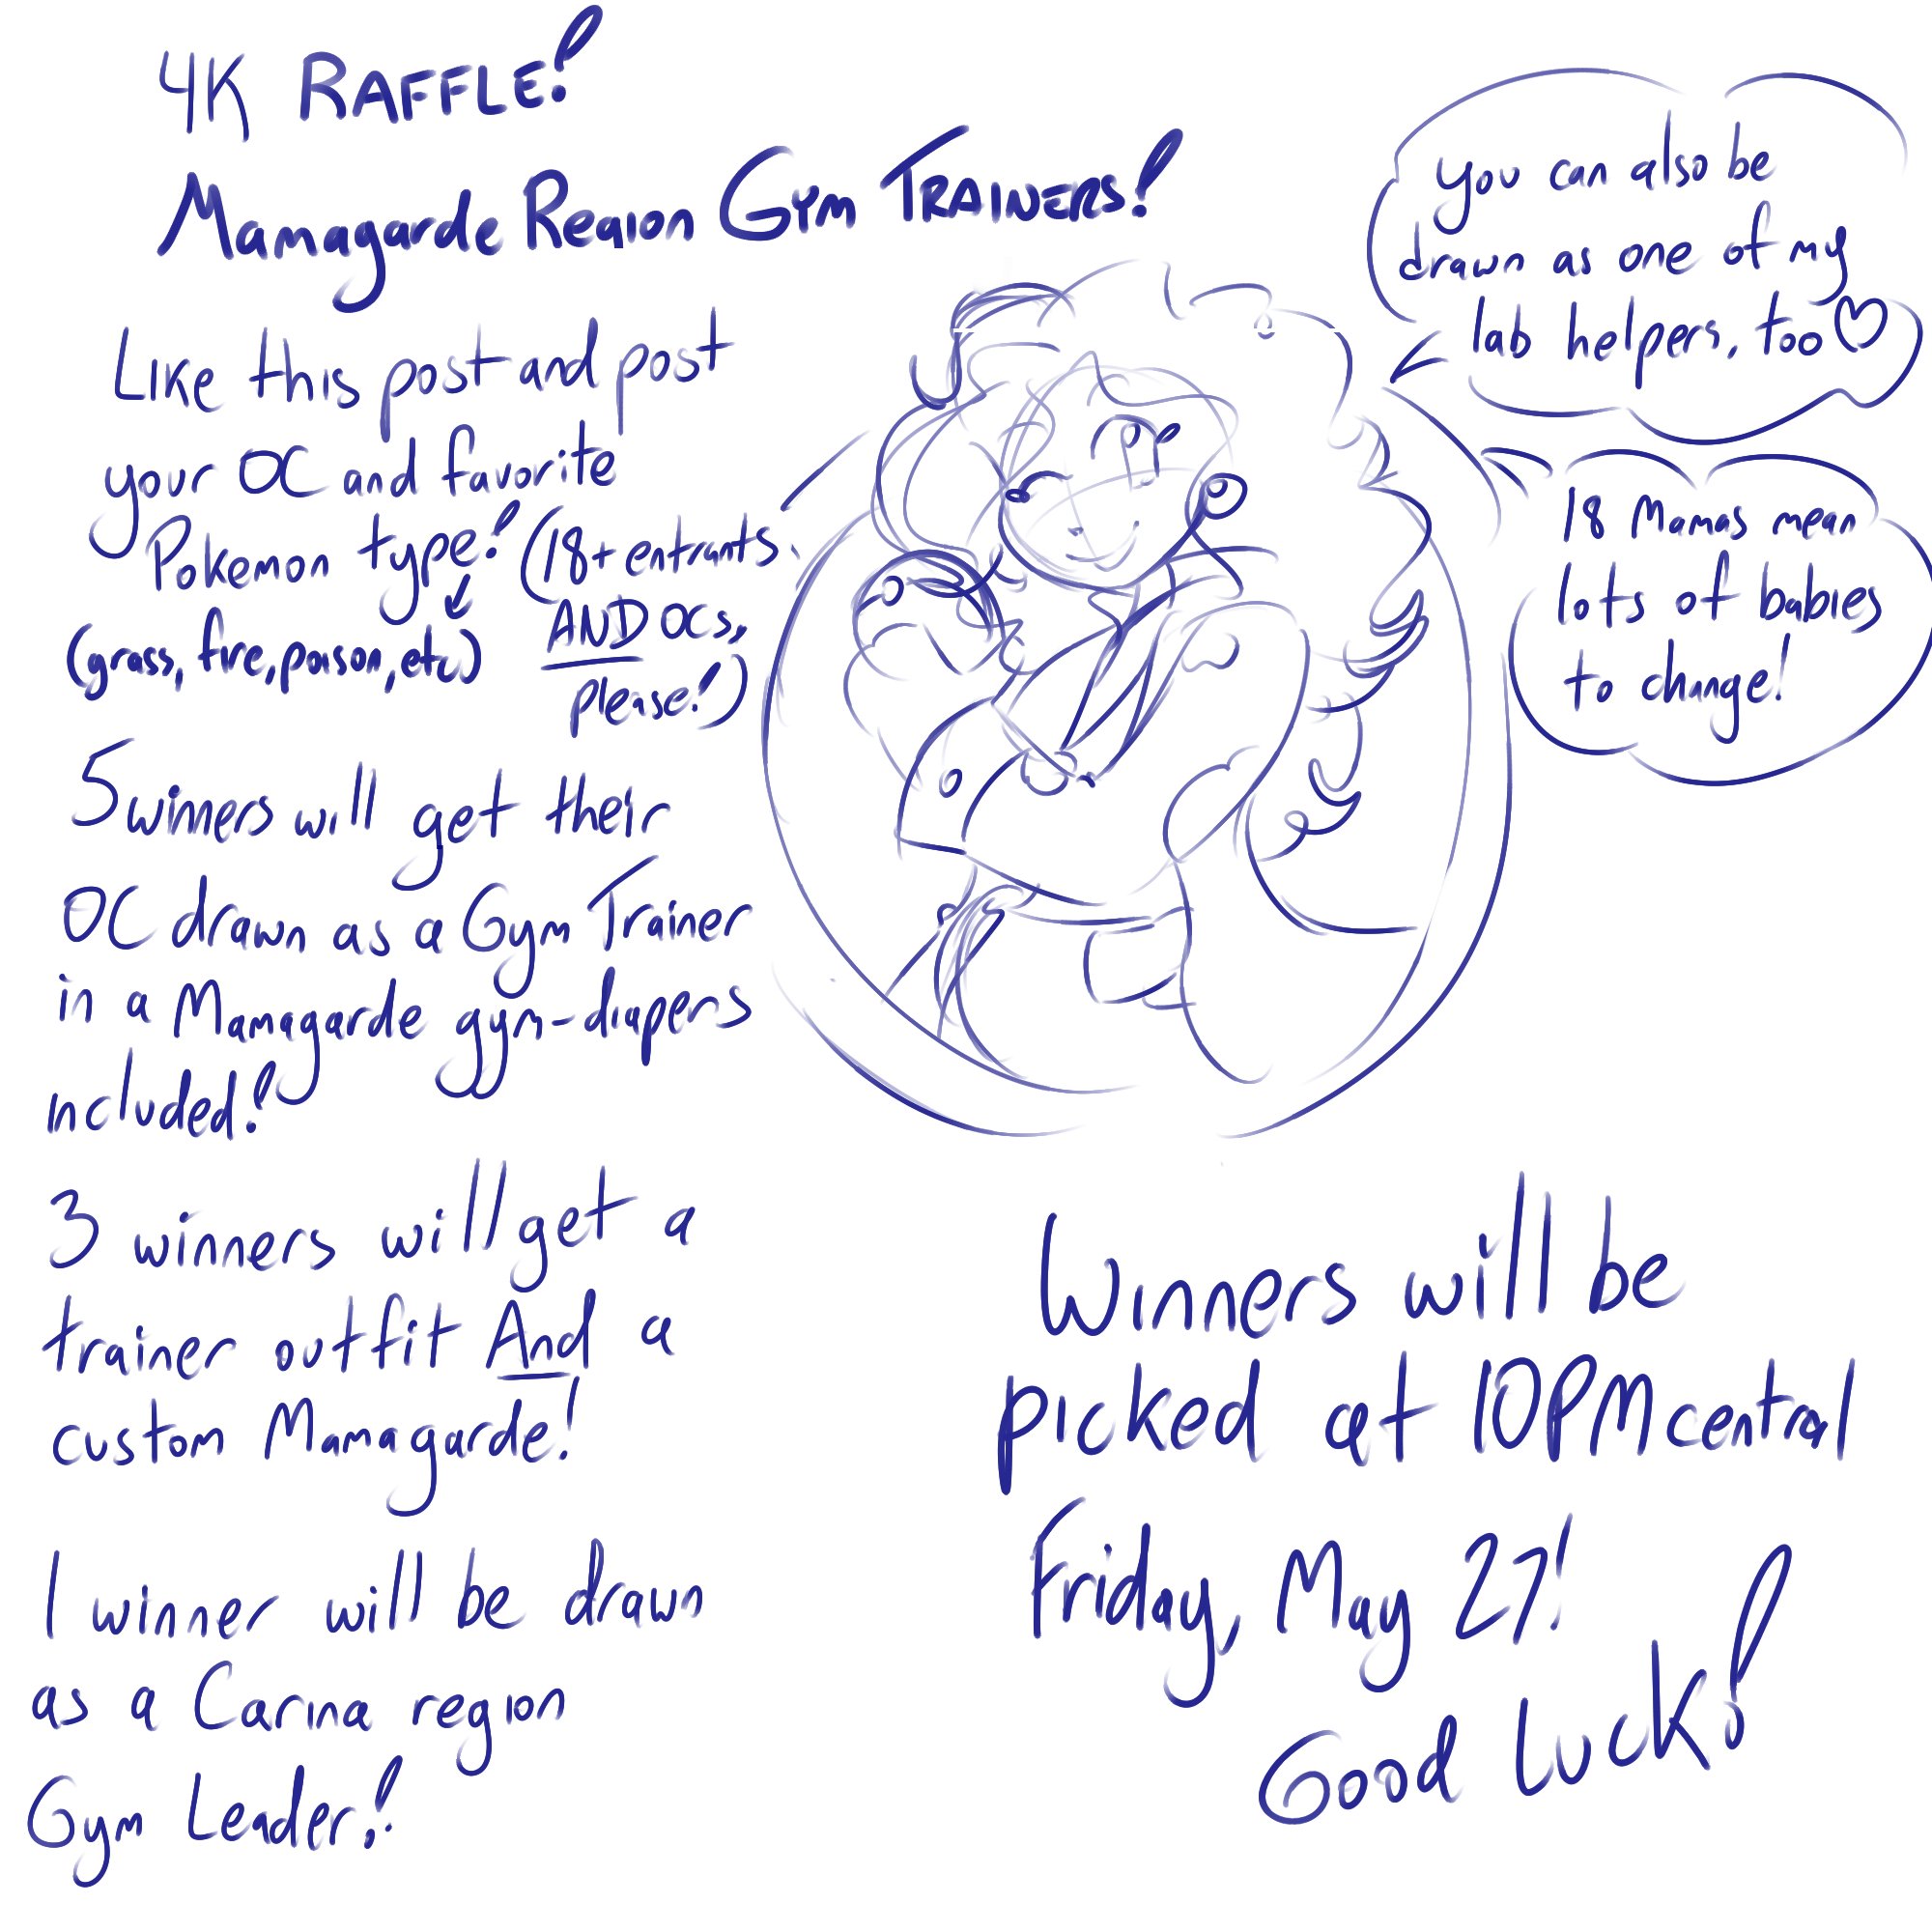 4K RAFFLE!
Mamagarde Region Gym TRAINERS!
Like this post and post
your OC and favorite
Pokemon type! (18+ entrants
(grass, fire, poison, etc) AND OCs,
please!)
5 winners will get their
OC drawn as a Gym Trainer
in a Mamagarde gym-diapers
included!
3 winners will get a
trainer outfit And a
custom Mamagarde!
1 winner will be drawn
as a Carina region
Gym Leader!
you can also be
drawn as one of my
lab helpers, too♡
18 Mamas mean
lots of babies
to change!
Winners will be
picked at 10PM central
Friday, May 27!
Good luck!